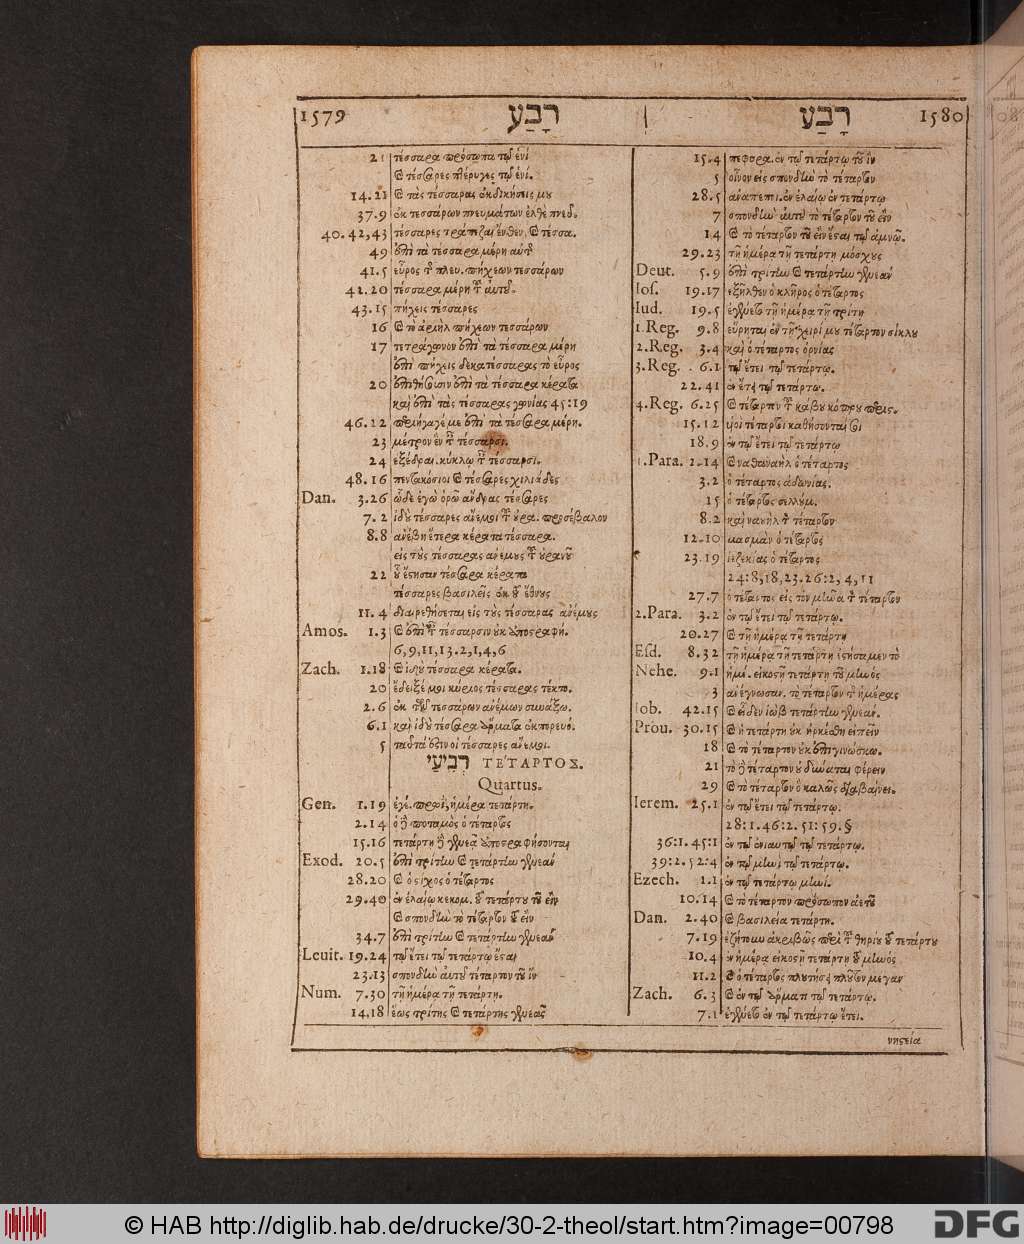 1579 רָבַע
21 τέσσαρα πρόσωπα τῷ ἑνί
ϗ τέσσαρες πτέρυγες τῷ ἑνί.
14.21 ϗ τὰς τέσσαρας ἐκδικήσεις μου
37.9 ἐκ τεσσάρων πνευμάτων ἐλθὲ πνεῦ.
40.42,43 τέσσαρες τράπεζαι ἔνθεν, ϗ τέσσα.
49 ἐπὶ τὰ τέσσαρα μέρη αὐτῆ
41.5 εὖρος τῆς πλευ. πήχεων τεσσάρων
42.20 τέσσαρα μέρη τῆ αὐτοῦ.
43.15 πήχεις τέσσαρες
16 ϗ τὸ ἀριὴλ πήχεων τεσσάρων
17 τετράγωνον ἐπὶ τὰ τέσσαρα μέρη
ἐπὶ πήχεις δεκατέσσαρας τὸ εὖρος
20 ἐπιθήσουσιν ἐπὶ τὰ τέσσαρα κέρατα
καὶ ἐπὶ τὰς τέσσαρας γωνίας 45:19
46.22 περιήγαγέ με ἐπὶ τὰ τέσσαρα μέρη.
23 μέτρον ἓν τῆς τέσσαρσι.
24 ἐξέδραι κύκλῳ τῆς τέσσαρσι.
48.16 πεντακόσιοι ϗ τέσσαρες χιλιάδες
Dan. 3.26 ὧδε ἐγὼ ὁρῶ ἄνδρας τέσσαρες
7.2 ἰδοὺ τέσσαρες ἄνεμοι τῆ οὐρα. προσέβαλον
8.8 ἀνέβη ἕτερα κέρατα τέσσαρα.
εἰς τοὺς τέσσαρας ἀνέμους τῆ οὐρανοῦ
22 οὗ ἔστησαν τέσσαρα κέρατα
τέσσαρες βασιλεῖς ἐκ τοῦ ἔθνους
11.4 διαιρεθήσεται εἰς τοὺς τέσσαρας ἀνέμους
Amos. 1.3 ϗ ἐπὶ τῆς τέσσαρσιν οὐκ ἀποστραφή.
6,9,11,13.2,1,4,6
Zach. 1.18 ϗ ἰδοὺ τέσσαρα κέρατα.
20 ἔδειξέ μοι κύριος τέσσαρας τέκτο.
2.6 ἐκ τῶν τεσσάρων ἀνέμων συνάξω.
6.1 καὶ ἰδοὺ τέσσαρα ἅρματα ἐκπορευό.
5 ταῦτά ἐστιν οἱ τέσσαρες ἄνεμοι.
רְבִיעִי ΤΕΤΑΡΤΟΣ.
Quartus.
Gen. 1.19 ἐγέ. πρωῒ, ἡμέρα τετάρτη.
2.14 ὁ δὲ ποταμὸς ὁ τέταρτος
15.16 τετάρτῃ δὲ γενεᾷ ἀποστραφήσονται
Exod. 20.5 ἐπὶ τρίτην ϗ τετάρτην γενεάν
28.20 ϗ ὁ στίχος ὁ τέταρτος
29.40 ἐν ἐλαίῳ κεκομ. τοῦ τετάρτου τοῦ εἲν
ϗ σπονδὴν τὸ τέταρτον τοῦ εἲν
34.7 ἐπὶ τρίτην ϗ τετάρτην γενεάν
Leuit. 19.24 τῷ ἔτει τῷ τετάρτῳ ἔσται
23.13 σπονδὴν αὐτοῦ τέταρτον τοῦ ἲν
Num. 7.30 τῇ ἡμέρᾳ τῇ τετάρτῃ.
14,18 ἕως τρίτης ϗ τετάρτης γενεᾶς
רָבַע 1580
15.4 πεφυρα. ἐν τῷ τετάρτῳ τοῦ ἲν
5 οἶνον εἰς σπονδὴν τὸ τέταρτον
28.5 ἀναπεποι. ἐν ἐλαίῳ ἐν τετάρτῳ
7 σπονδὴν αὐτοῦ τὸ τέταρτον τοῦ εἲν
14 ϗ τὸ τέταρτον τοῦ εἲν ἔσται τῷ ἀμνῷ.
29.23 τῇ ἡμέρᾳ τῇ τετάρτῃ μόσχους
Deut. 5.9 ἐπὶ τρίτην ϗ τετάρτην γενεάν
Ios. 19.17 ἐξῆλθεν ὁ κλῆρος ὁ τέταρτος
Iud. 19.5 ἐγένετο τῇ ἡμέρᾳ τῇ τρίτῃ
1.Reg. 9.8 εὕρηται ἐν τῇ χειρί μου τέταρτον σίκλου
2.Reg. 3.4 καὶ ὁ τέταρτος ὀρνίας
3.Reg. 6.1 τῷ ἔτει τῷ τετάρτῳ.
22.41 ἐν ἔτει τῷ τετάρτῳ.
4.Reg. 6.25 ϗ τέταρτον τῆ κάβου κόπρου περις.
15.12 υἱοὶ τέταρτοι καθήσονταί σοι
18.9 ἐν τῷ ἔτει τῷ τετάρτῳ
1.Para. 2.14 ϗ ναθαναὴλ ὁ τέταρτος
3.2 ὁ τέταρτος ἀδωνίας.
15 ὁ τέταρτος σελλούμ.
8.2 καὶ ναυὴλ τὸν τέταρτον
12.10 μασμὰν ὁ τέταρτος
23.19 ἰεζεκίας ὁ τέταρτος
24:8,18,23.26:2,4,11
27.7 ὁ τέταρτος εἰς τὸν μῆνα τὸν τέταρτον
2.Para. 3.2 ἐν τῷ ἔτει τῷ τετάρτῳ.
20.27 ϗ τῇ ἡμέρᾳ τῇ τετάρτῃ
Esd. 8.32 τῇ ἡμέρᾳ τῇ τετάρτῃ ἐστήσαμεν τὸ
Nehe. 9.1 ἡμέ. εἰκοστῇ τετάρτῃ τοῦ μηνός
3 ἀνέγνωσαν. τὸ τέταρτον τῆς ἡμέρας
Iob. 42.15 ϗ εἶδεν ἰὼβ τετάρτην γενεάν.
Prou. 30.15 ϗ ἡ τετάρτη οὐκ ἠρκέσθη εἰπεῖν
18 ϗ τὸ τέταρτον οὐκ ἐπιγινώσκω.
21 τὸ δὲ τέταρτον οὐ δύναται φέρειν
29 ϗ τὸ τέταρτον ὃ καλῶς διαβαίνει.
Ierem. 25.1 ἐν τῷ ἔτει τῷ τετάρτῳ.
28:1.46:2.51:59.§
36:1.45:1 ἐν τῷ ἐνιαυτῷ τῷ τετάρτῳ.
39:2.52:4 ἐν τῷ μηνὶ τῷ τετάρτῳ.
Ezech. 1.1 ἐν τῷ τετάρτῳ μηνί.
10.14 ϗ τὸ τέταρτον πρόσωπον ἀετοῦ
Dan. 2.40 ϗ βασιλεία τετάρτη.
7.19 ἐζήτουν ἀκριβῶς περὶ τοῦ θηρίου τοῦ τετάρτου
10.4 ἐν ἡμέρᾳ εἰκοστῇ τετάρτῃ τοῦ μηνός
11.2 ϗ ὁ τέταρτος πλουτήσει πλοῦτον μέγαν
Zach. 6.3 ϗ ἐν τῷ ἅρματι τῷ τετάρτῳ.
7.1 ἐγένετο ἐν τῷ τετάρτῳ ἔτει.
νηστεία
© HAB http://diglib.hab.de/drucke/30-2-theol/start.htm?image=00798
DFG